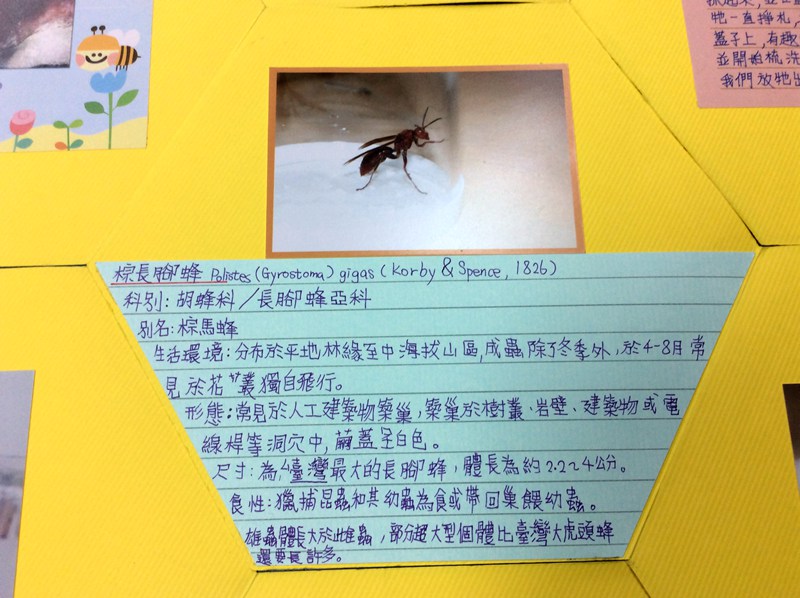 牠一直掙扎,
蓋子上,有趣
並開始梳洗
我們放牠出
棕長腳蜂 Polistes (Gyrostoma) gigas (Korby & Spence, 1826)
科別: 胡蜂科/長腳蜂亞科
別名: 棕馬蜂
生活環境: 分布於平地林緣至中海拔山區,成蟲除了冬季外,於4-8月常
見於花叢獨自飛行。
形態: 常見於人工建築物築巢,築巢於樹叢、岩壁、建築物或電
線桿等洞穴中,繭蓋呈白色。
尺寸: 為台灣最大的長腳蜂,體長為約2.2~4公分。
食性: 獵捕昆蟲和其幼蟲為食或帶回巢餵幼蟲。
雄蟲體長大於雌蟲,部分超大型個體比臺灣大虎頭蜂
還要長許多。